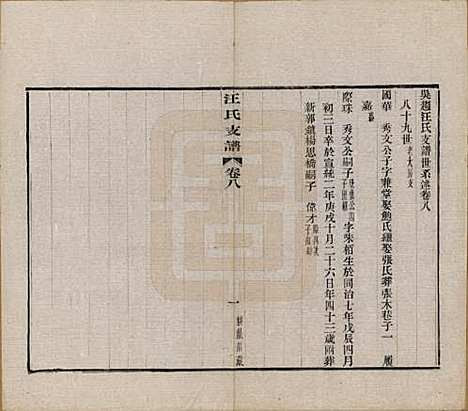 吳趨汪氏支譜世系譜卷八
八十九世
國華 秀文公子字兼堂娶鮑氏繼娶張氏葬張木巷子一 履
嘉
際珠 秀文公嗣子字朱栢生於同治七年戊辰四月
初三日卒於宣統二年庚戌十月二十六日年四十三歲附葬
新郭鎮楊思橋嗣子 偉才
汪氏支譜 卷八
一